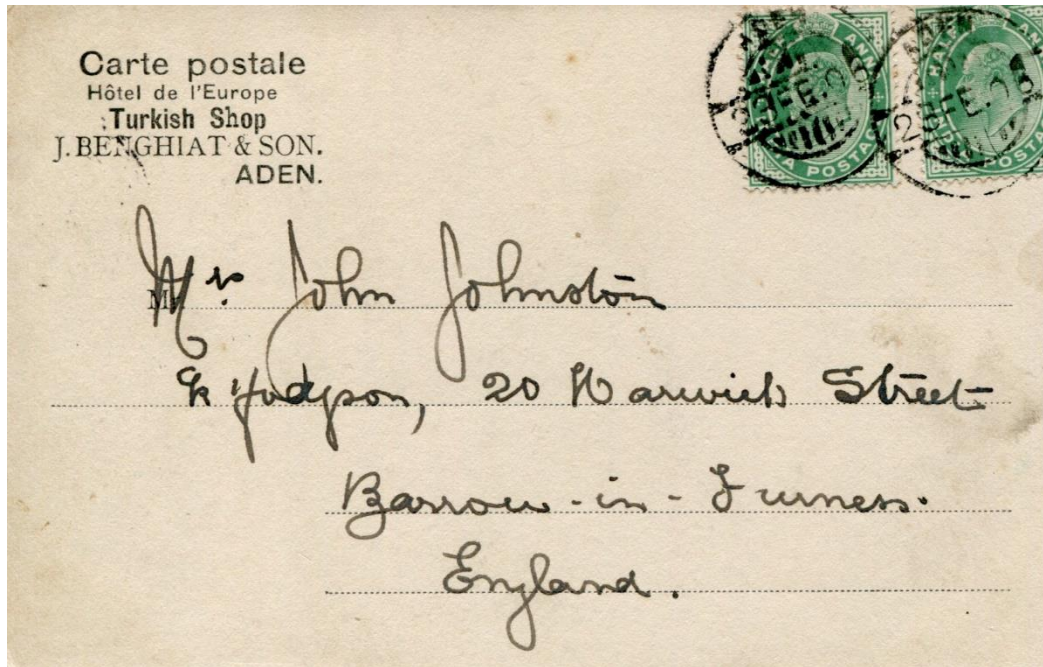 Carte postale
Hôtel de l'Europe
Turkish Shop
J. BENGHIAT & SON.
ADEN.
HALF ANNA
INDIA POSTAGE
HALF ANNA
INDIA POSTAGE
ADEN
FE
ADEN
FE
M
Mr. John Johnston
c/o Hodgson, 20 Warwick Street
Barrow-in-Furness.
England.